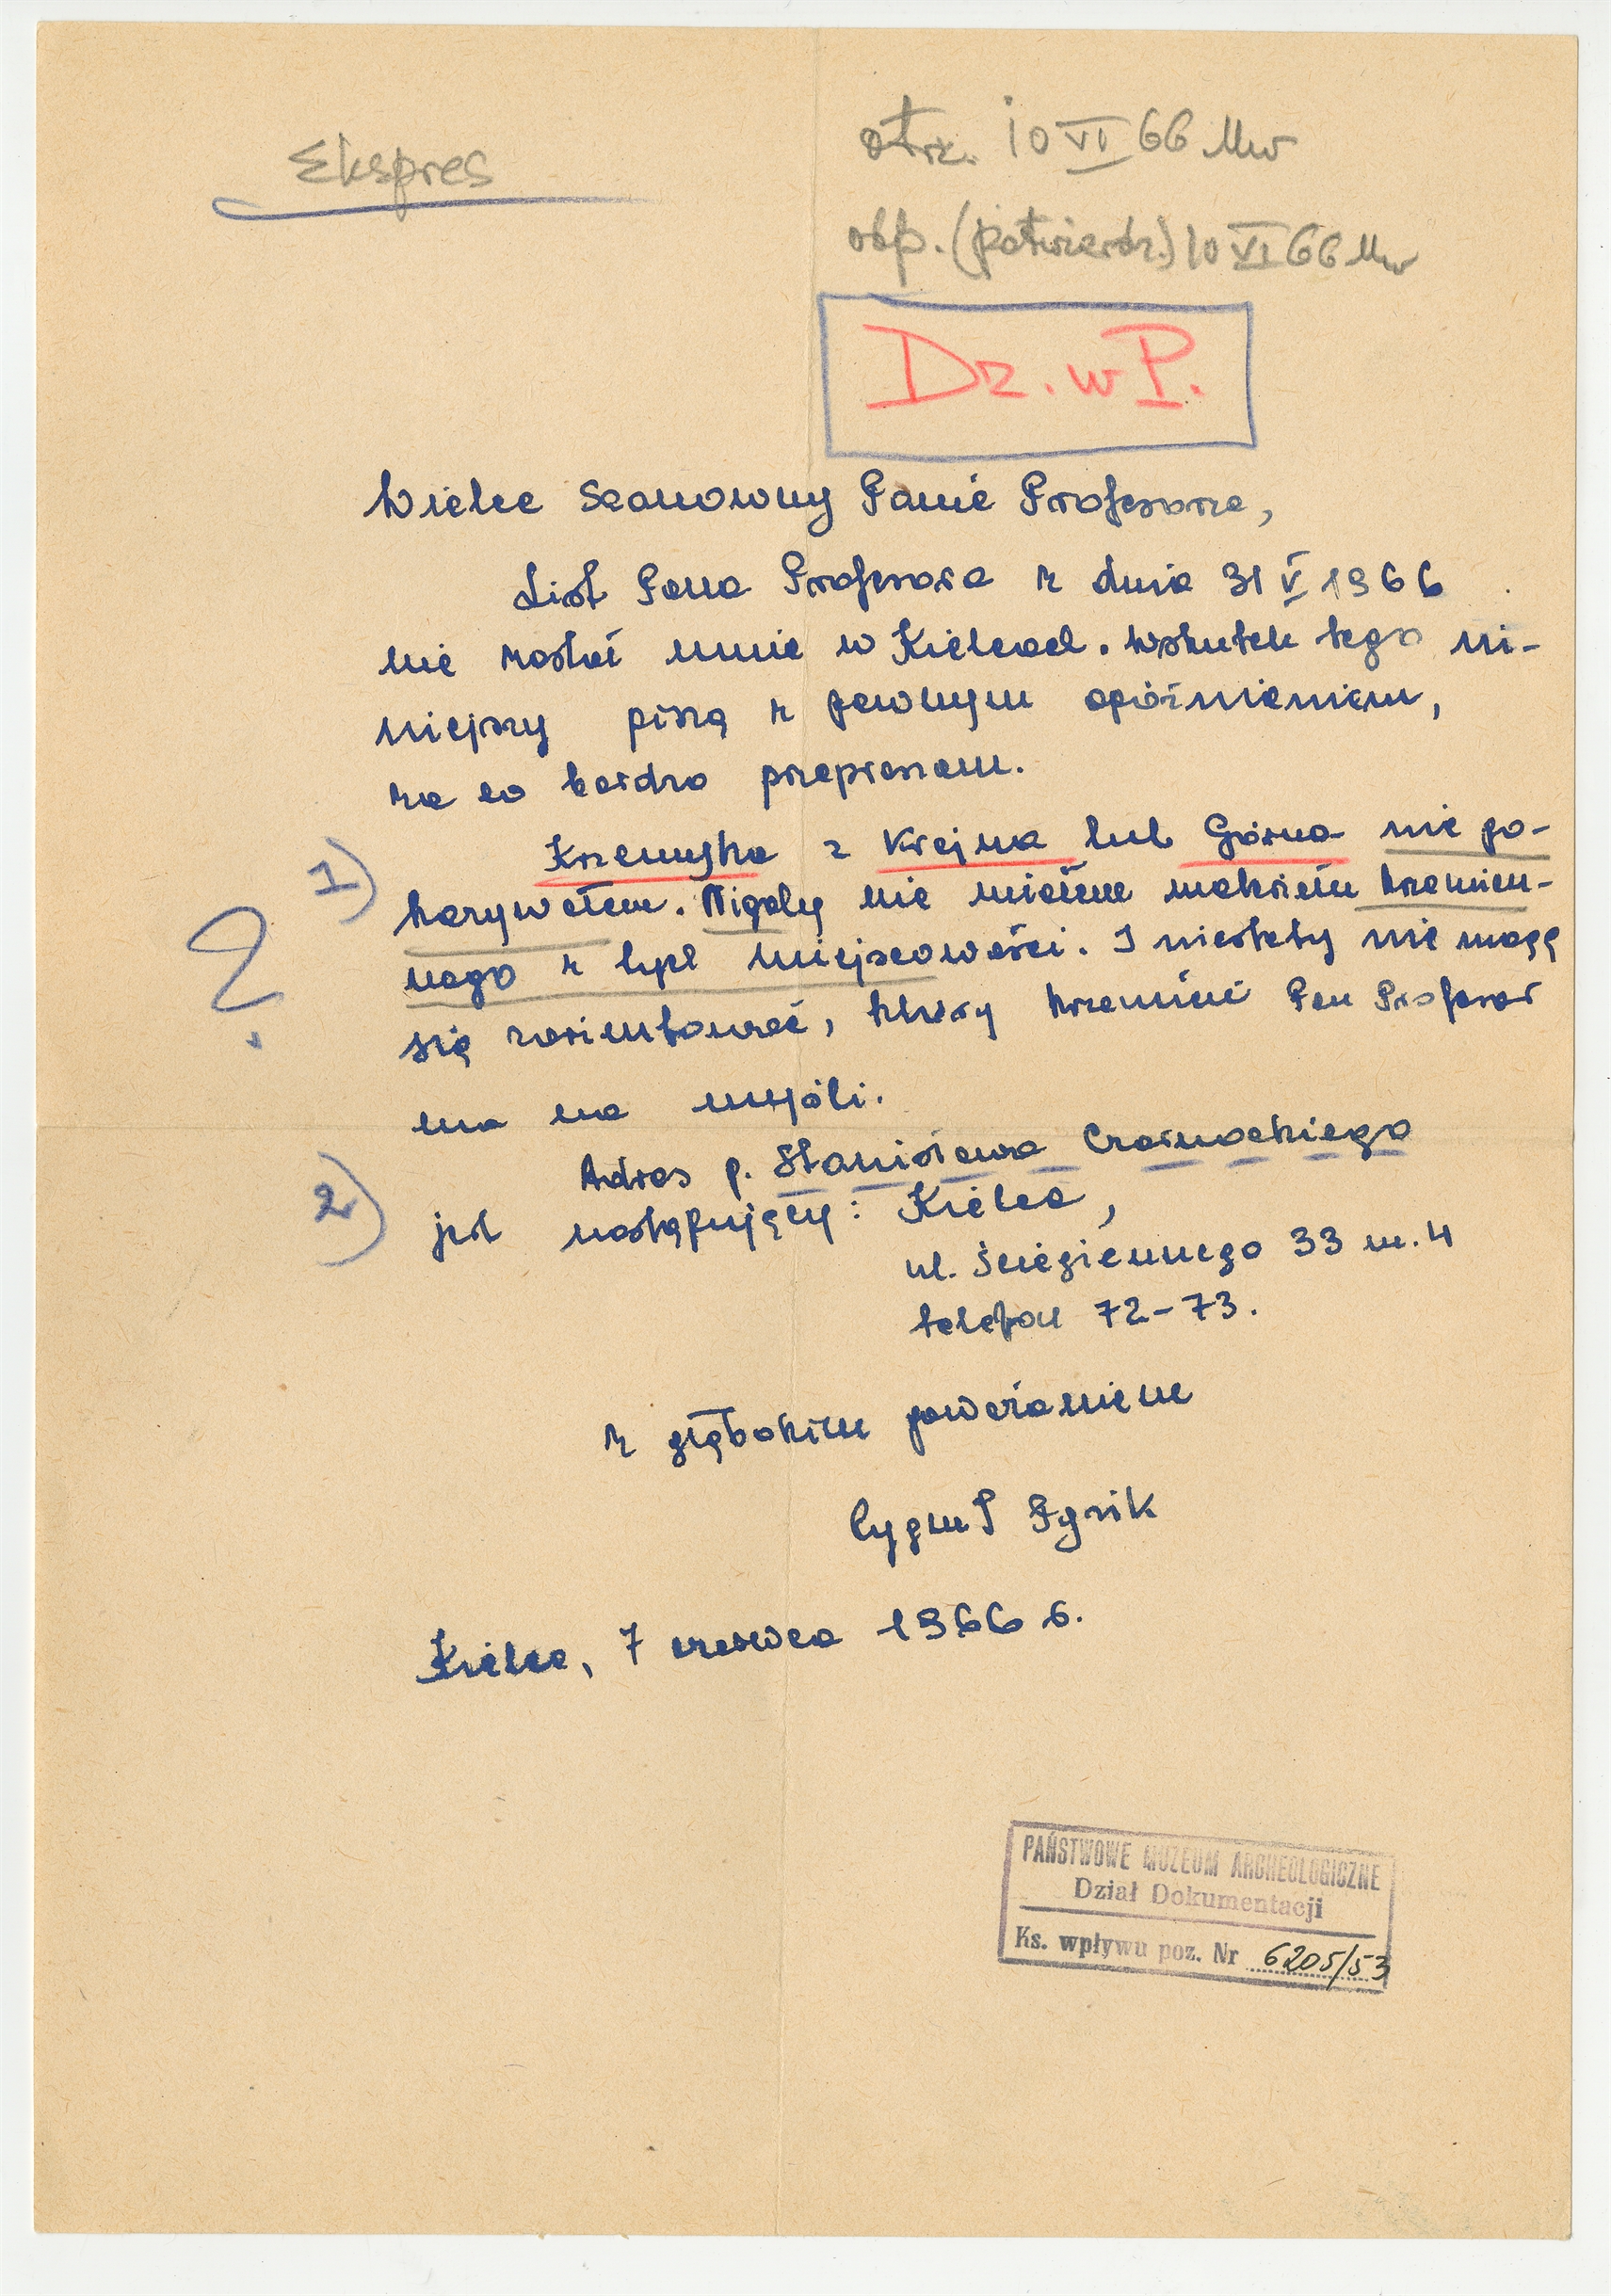 Ekspres
otrz. 10 VI 66 Mw
odp. (potwierdz.) 10 VI 66 Mw
Dz. w P.
Wielce Szanowny Panie Profesorze,
List Pana Profesora z dnia 31 V 1966
nie zastał mnie w Kielcach. Wskutek tego ni-
niejszy piszę z pewnym opóźnieniem,
za co bardzo przepraszam.
1) Krzemyka z Krajna lub Górna nie po-
kazywałem. Nigdy nie miałem materiału krzemien-
nego z tych miejscowości. I niestety nie mogę
?
się zorientować, który krzemień Pan Profesor
ma na myśli.
2) Adres p. Stanisława Czarnockiego
jest następujący: Kielce,
ul. Ściegiennego 33 m. 4
telefon 72-73.
z głębokim poważaniem
Zygmunt Pyzik
Kielce, 7 czerwca 1966 r.
PAŃSTWOWE MUZEUM ARCHEOLOGICZNE
Dział Dokumentacji
Ks. wpływu poz. Nr 6205/53